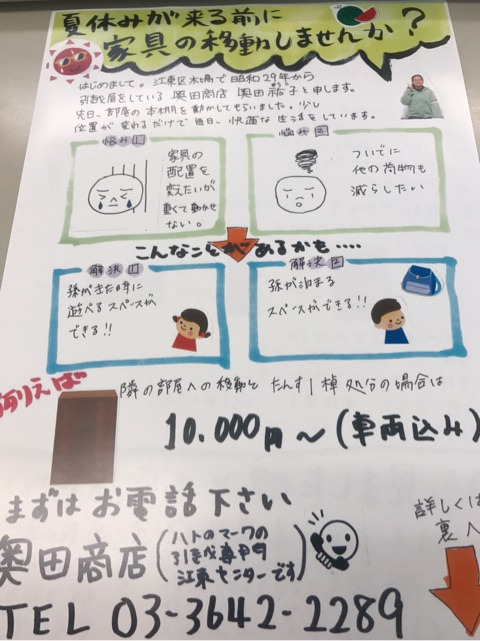 夏休みが来る前に
家具の移動しませんか?
はじめまして。江東区木場で昭和29年から
引越屋をしている奥田商店 奥田裕子と申します。
先日、部屋の本棚を動かしてもらいました。少し
位置が変わるだけで毎日、快適な生活をしています。
悩み①
家具の
配置を
変えたいが
重くて動かせ
ない。
悩み②
ついでに
他の荷物も
減らしたい
こんなことがあるかも・・・・
解決①
孫がきた時に
遊べるスペースが
できる!!
解決②
孫が泊まる
スペースができる!!
例えば
隣の部屋への移動と たんす1棹処分の場合は
10.000円〜(車両込み)
まずは お電話下さい
奥田商店
(ハトのマークの
引越専門
江東センターです)
詳しくは
裏へ
TEL 03-3642-2289